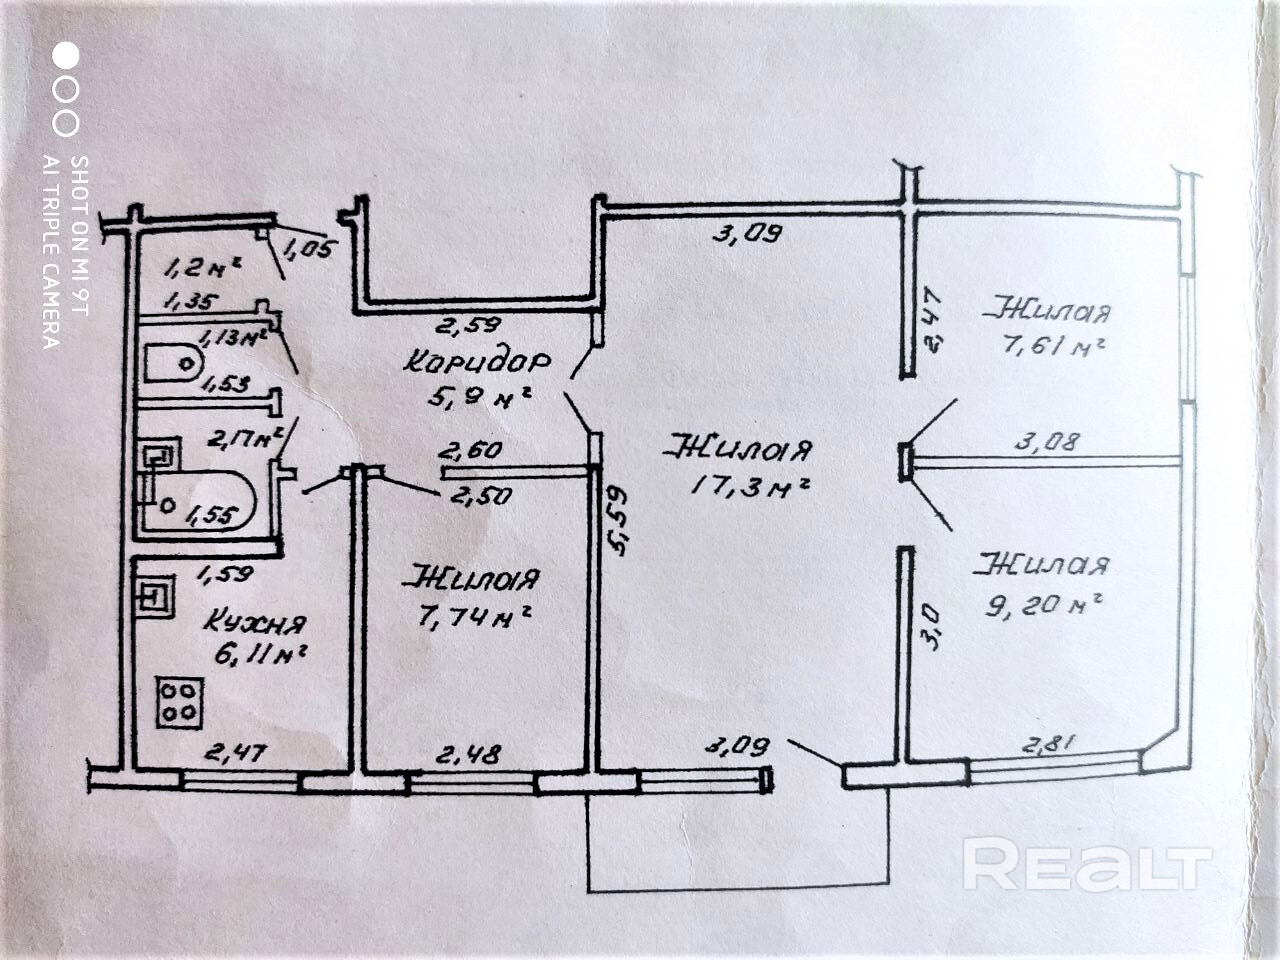 SHOT ON MI 9T
AI TRIPLE CAMERA
1,05
1,2 м²
1,35
1,13м²
1,53
2,17м²
1,55
1,59
Кухня
6,11м²
2,47
2,59
Коридор
5,9 м²
2,60
2,50
Жилая
7,74 м²
2,48
3,09
Жилая
17,3м²
5,59
3,09
2,47
Жилая
7,61 м²
3,08
Жилая
9,20 м²
3,0
2,81
REALT